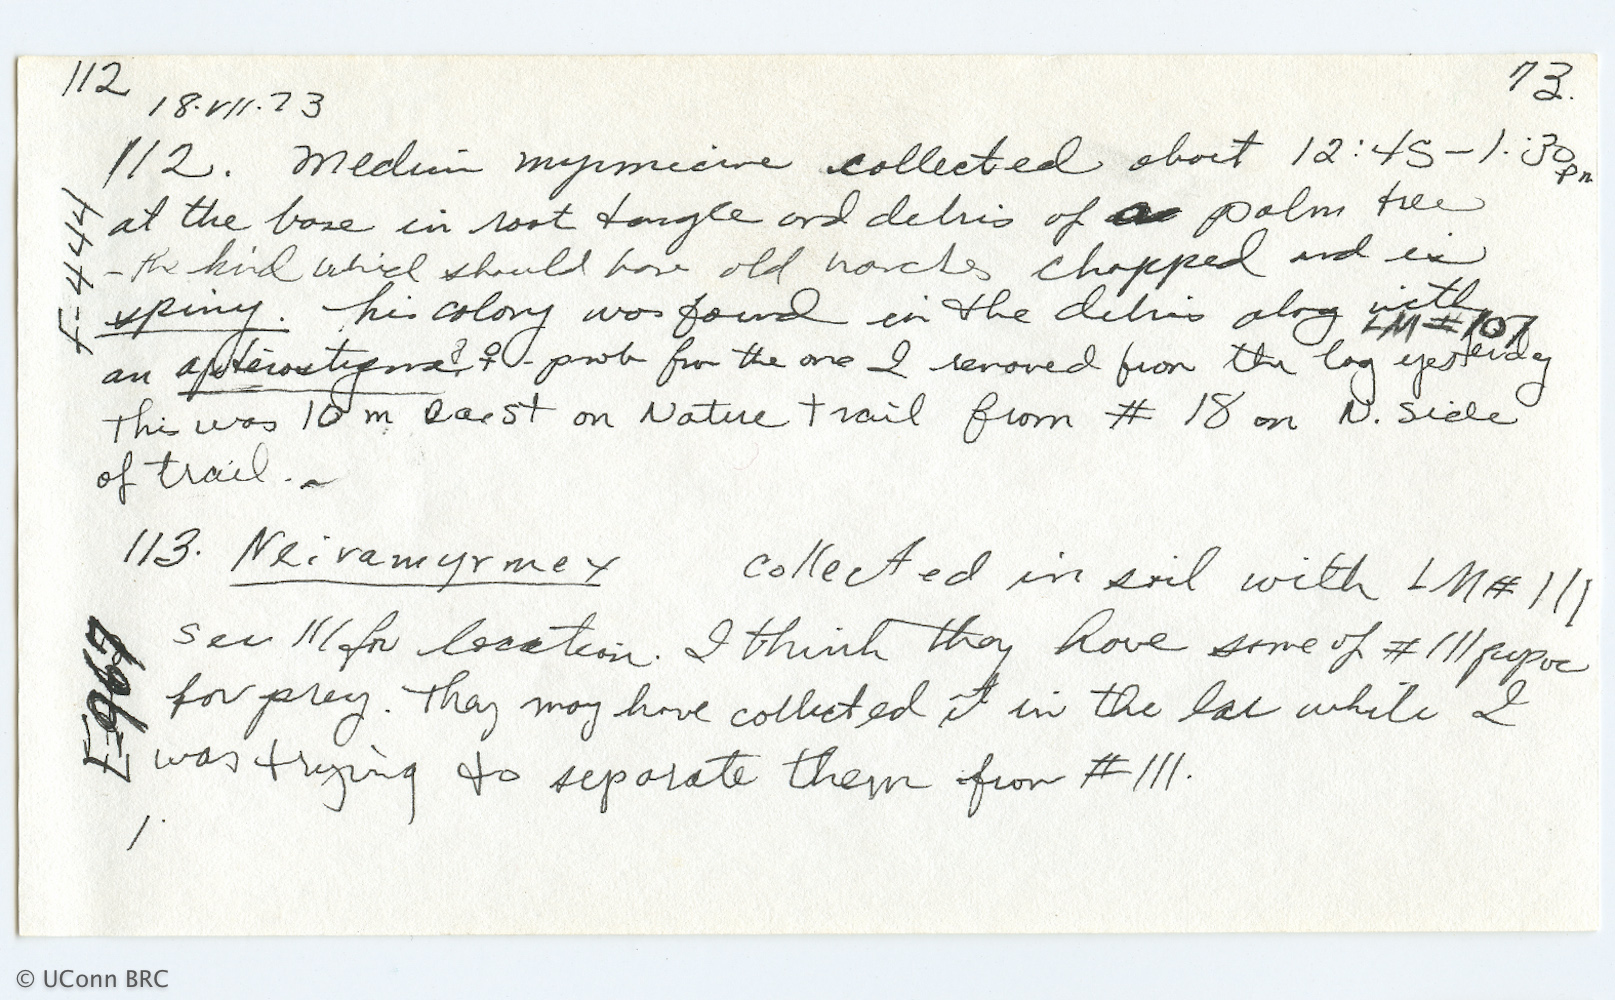 112
73.
18.VII.73
112. Medium myrmicine collected about 12:45-1:30 pm
at the base in root tangle and debris of a palm tree
- the kind which should have old chopped and is
spiny. This colony was found in the debris along with
LM#107
an apterostigma? ♀ - prob from the one I removed from the log yesterday
This was 10 m East on Nature trail from # 18 on N. side
of trail. -
E-444
113. Neivamyrmex collected in soil with LM# 111
see 111 for location. I think they have some of #111 pupae
for prey. They may have collected it in the while I
was trying to separate them from #111.
E-967
1.
© UConn BRC